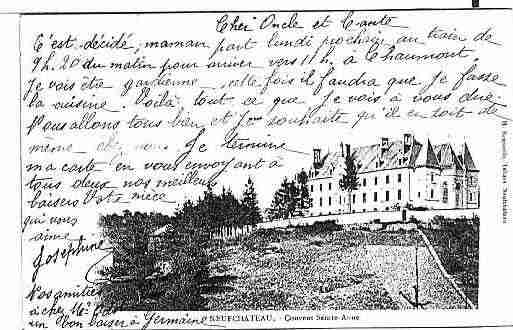 Cher Oncle et Tante
C'est décidé, maman part lundi prochain au train de
9h.20 du matin pour arriver vers 11h. à Chaumont.
Je vais être gardienne, cette fois il faudra que je fasse
la cuisine. Voilà tout ce que je vais à vous dire
Nous allons tous bien et j' souhaite qu'il en soit de
même chez vous. Je termine
ma carte en vous envoyant à
tous deux nos meilleurs
baisers Votre nièce
qui vous
aime
Joséphine
Nos amitiés
à chez Me
un bon baiser à Germaine
NEUFCHATEAU. - Couvent Sainte-Anne